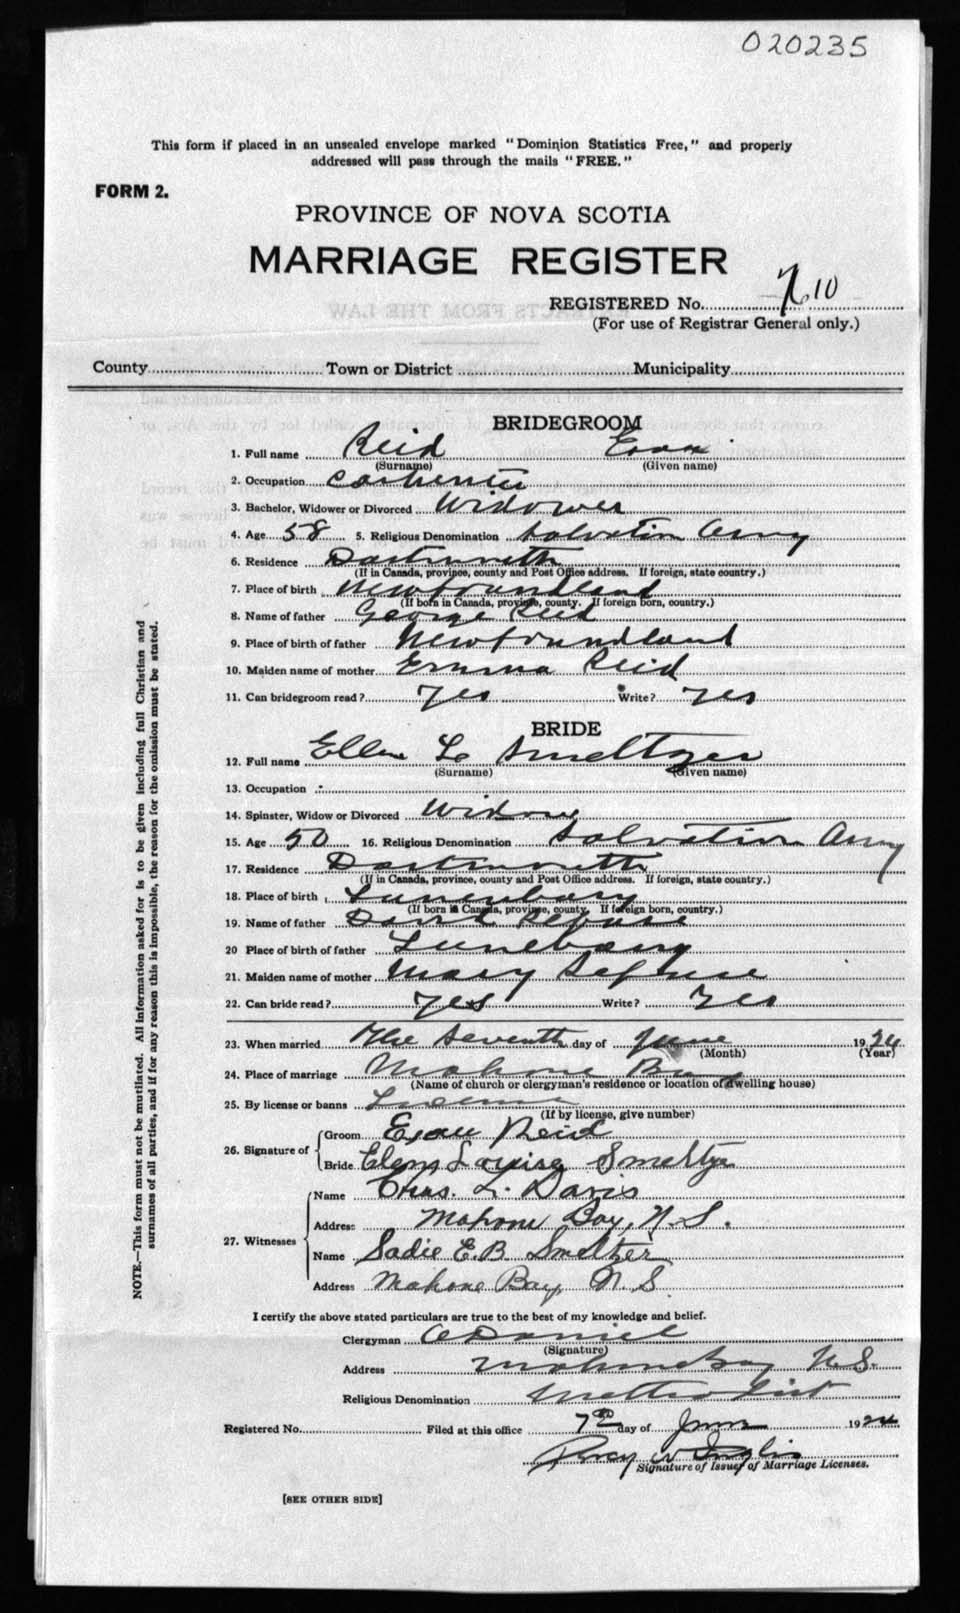 020235
This form if placed in an unsealed envelope marked "Dominion Statistics Free," and properly
addressed will pass through the mails "FREE."
FORM 2.
PROVINCE OF NOVA SCOTIA
MARRIAGE REGISTER
REGISTERED No. 710
(For use of Registrar General only.)
County Town or District Municipality
BRIDEGROOM
1. Full name Reid
(Surname) (Given name)
2. Occupation Carpenter
3. Bachelor, Widower or Divorced Widower
4. Age 58 5. Religious Denomination Salvation Army
6. Residence Dartmouth
(If in Canada, province, county and Post Office address. If foreign, state country.)
7. Place of birth Newfoundland
(If born in Canada, province, county. If foreign born, country.)
8. Name of father George Reid
9. Place of birth of father Newfoundland
10. Maiden name of mother Emma Reid
11. Can bridegroom read? Yes Write? Yes
BRIDE
12. Full name Ellen L Smeltzer
(Surname) (Given name)
13. Occupation
14. Spinster, Widow or Divorced Widow
15. Age 50 16. Religious Denomination Salvation Army
17. Residence Dartmouth
(If in Canada, province, county and Post Office address. If foreign, state country.)
18. Place of birth Lunenburg
(If born in Canada, province, county. If foreign born, country.)
19. Name of father David
20 Place of birth of father Lunebarg
21. Maiden name of mother Mary
22. Can bride read? Yes Write? Yes
23. When married The Seventh day of June 1924
(Month) (Year)
24. Place of marriage Mahone Bay
(Name of church or clergyman's residence or location of dwelling house)
25. By license or banns License
(If by license, give number)
26. Signature of Groom Reid
Bride Louise Smeltzer
27. Witnesses Name Chas. L. Davis
Address Mahone Bay, N.S.
Name Sadie E.B. Smeltzer
Address Mahone Bay, N.S.
I certify the above stated particulars are true to the best of my knowledge and belief.
Clergyman
(Signature)
Address Mahone Bay N.S.
Religious Denomination Methodist
Registered No. Filed at this office 7th day of June 1924
Percy W Inglis
Signature of Issuer of Marriage Licenses.
[SEE OTHER SIDE]
NOTE.—This form must not be mutilated. All information asked for is to be given including full Christian and
surnames of all parties, and if for any reason this is impossible, the reason for the omission must be stated.